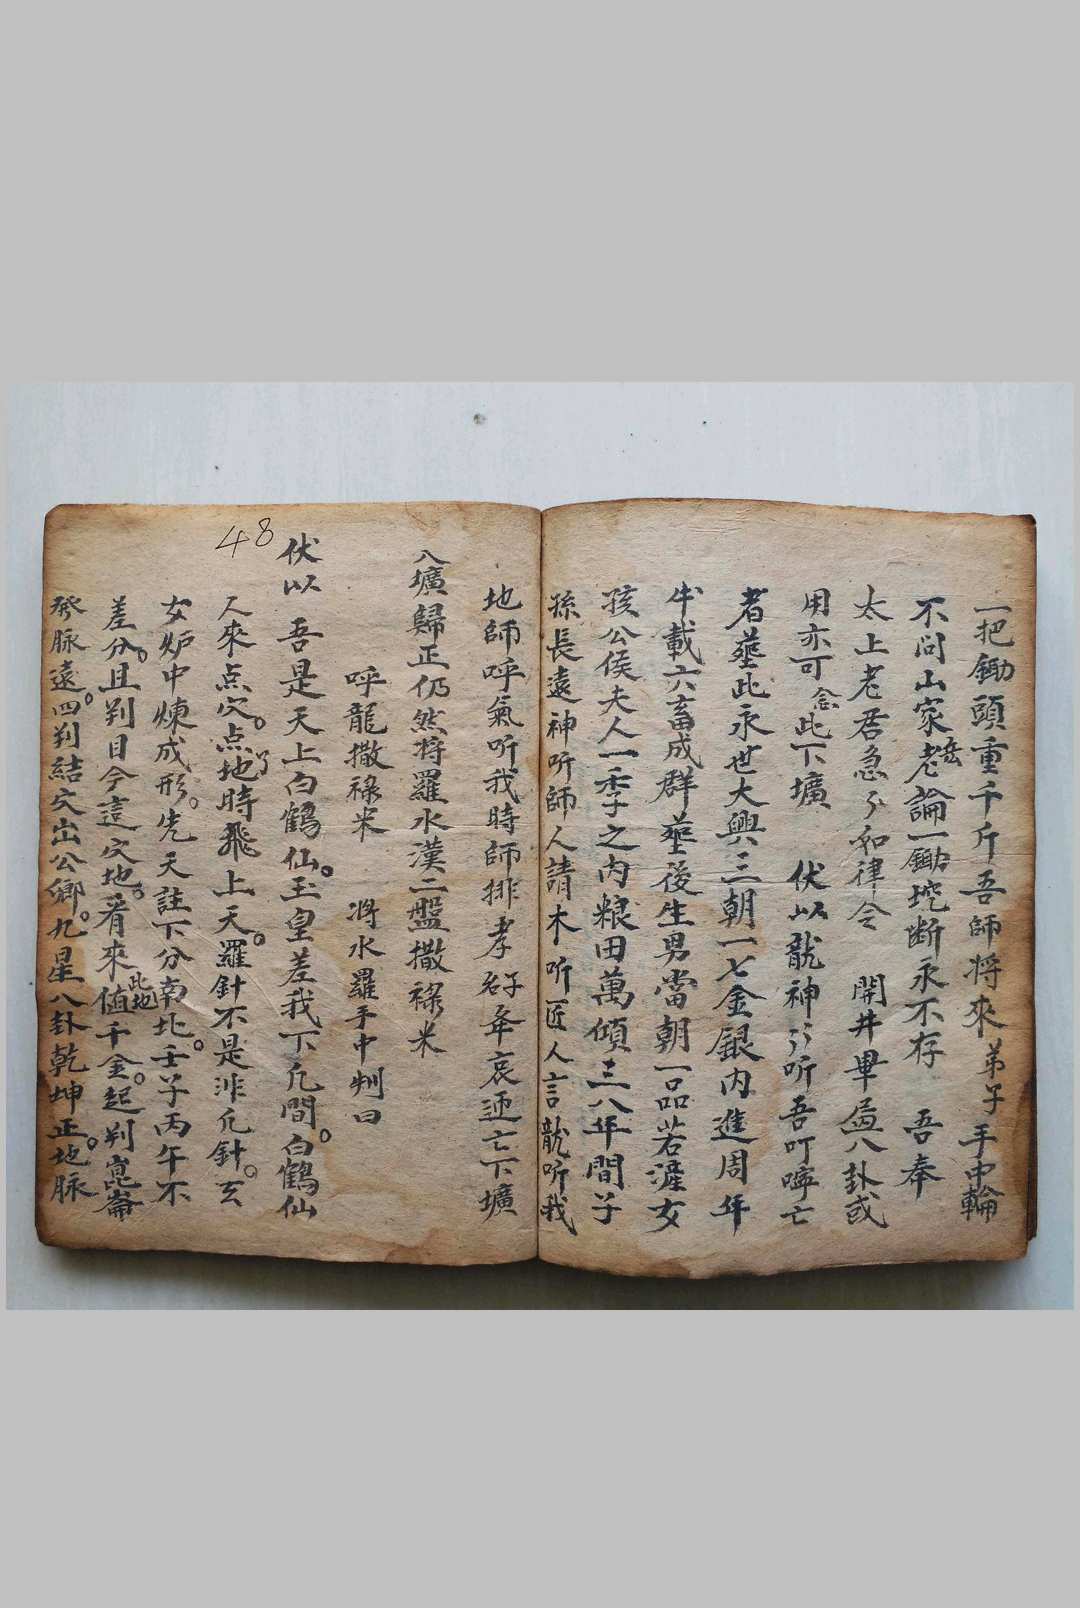 一把鋤頭重千斤吾師将來弟子手中輪
不問山家老嫩論一鋤挖断永不存 吾奉
太上老君急々如律令 開井畢 画八卦或
用亦可念此下壙 伏以龍神〻听吾叮嚀亡
者𦵏此永世大興三朝一七金銀內進周年
半載六畜成群𦵏後生男當朝一品若涯女
孩公侯夫人一季之内粮田萬傾三八年間子
孫長遠神听師人請木听匠人言龍听我
地師呼氣听我時師排孝好年哀逥亡下壙
八壙歸正仍然将羅水漢二盤撒禄米
呼龍撒禄米 将水羅手中判曰
48
伏以 吾是天上白鶴仙。玉皇差我下凢間。白鶴仙
人來点穴。点了地時飛上天。羅針不是非凢針。玄
女炉中煉成形。先天註下分南北。壬子丙午不
差分。且判目今這穴地。看來此地值千金。起判崑崙
發脉遠。四判結穴出公卿。九星八卦乾坤正。地脉